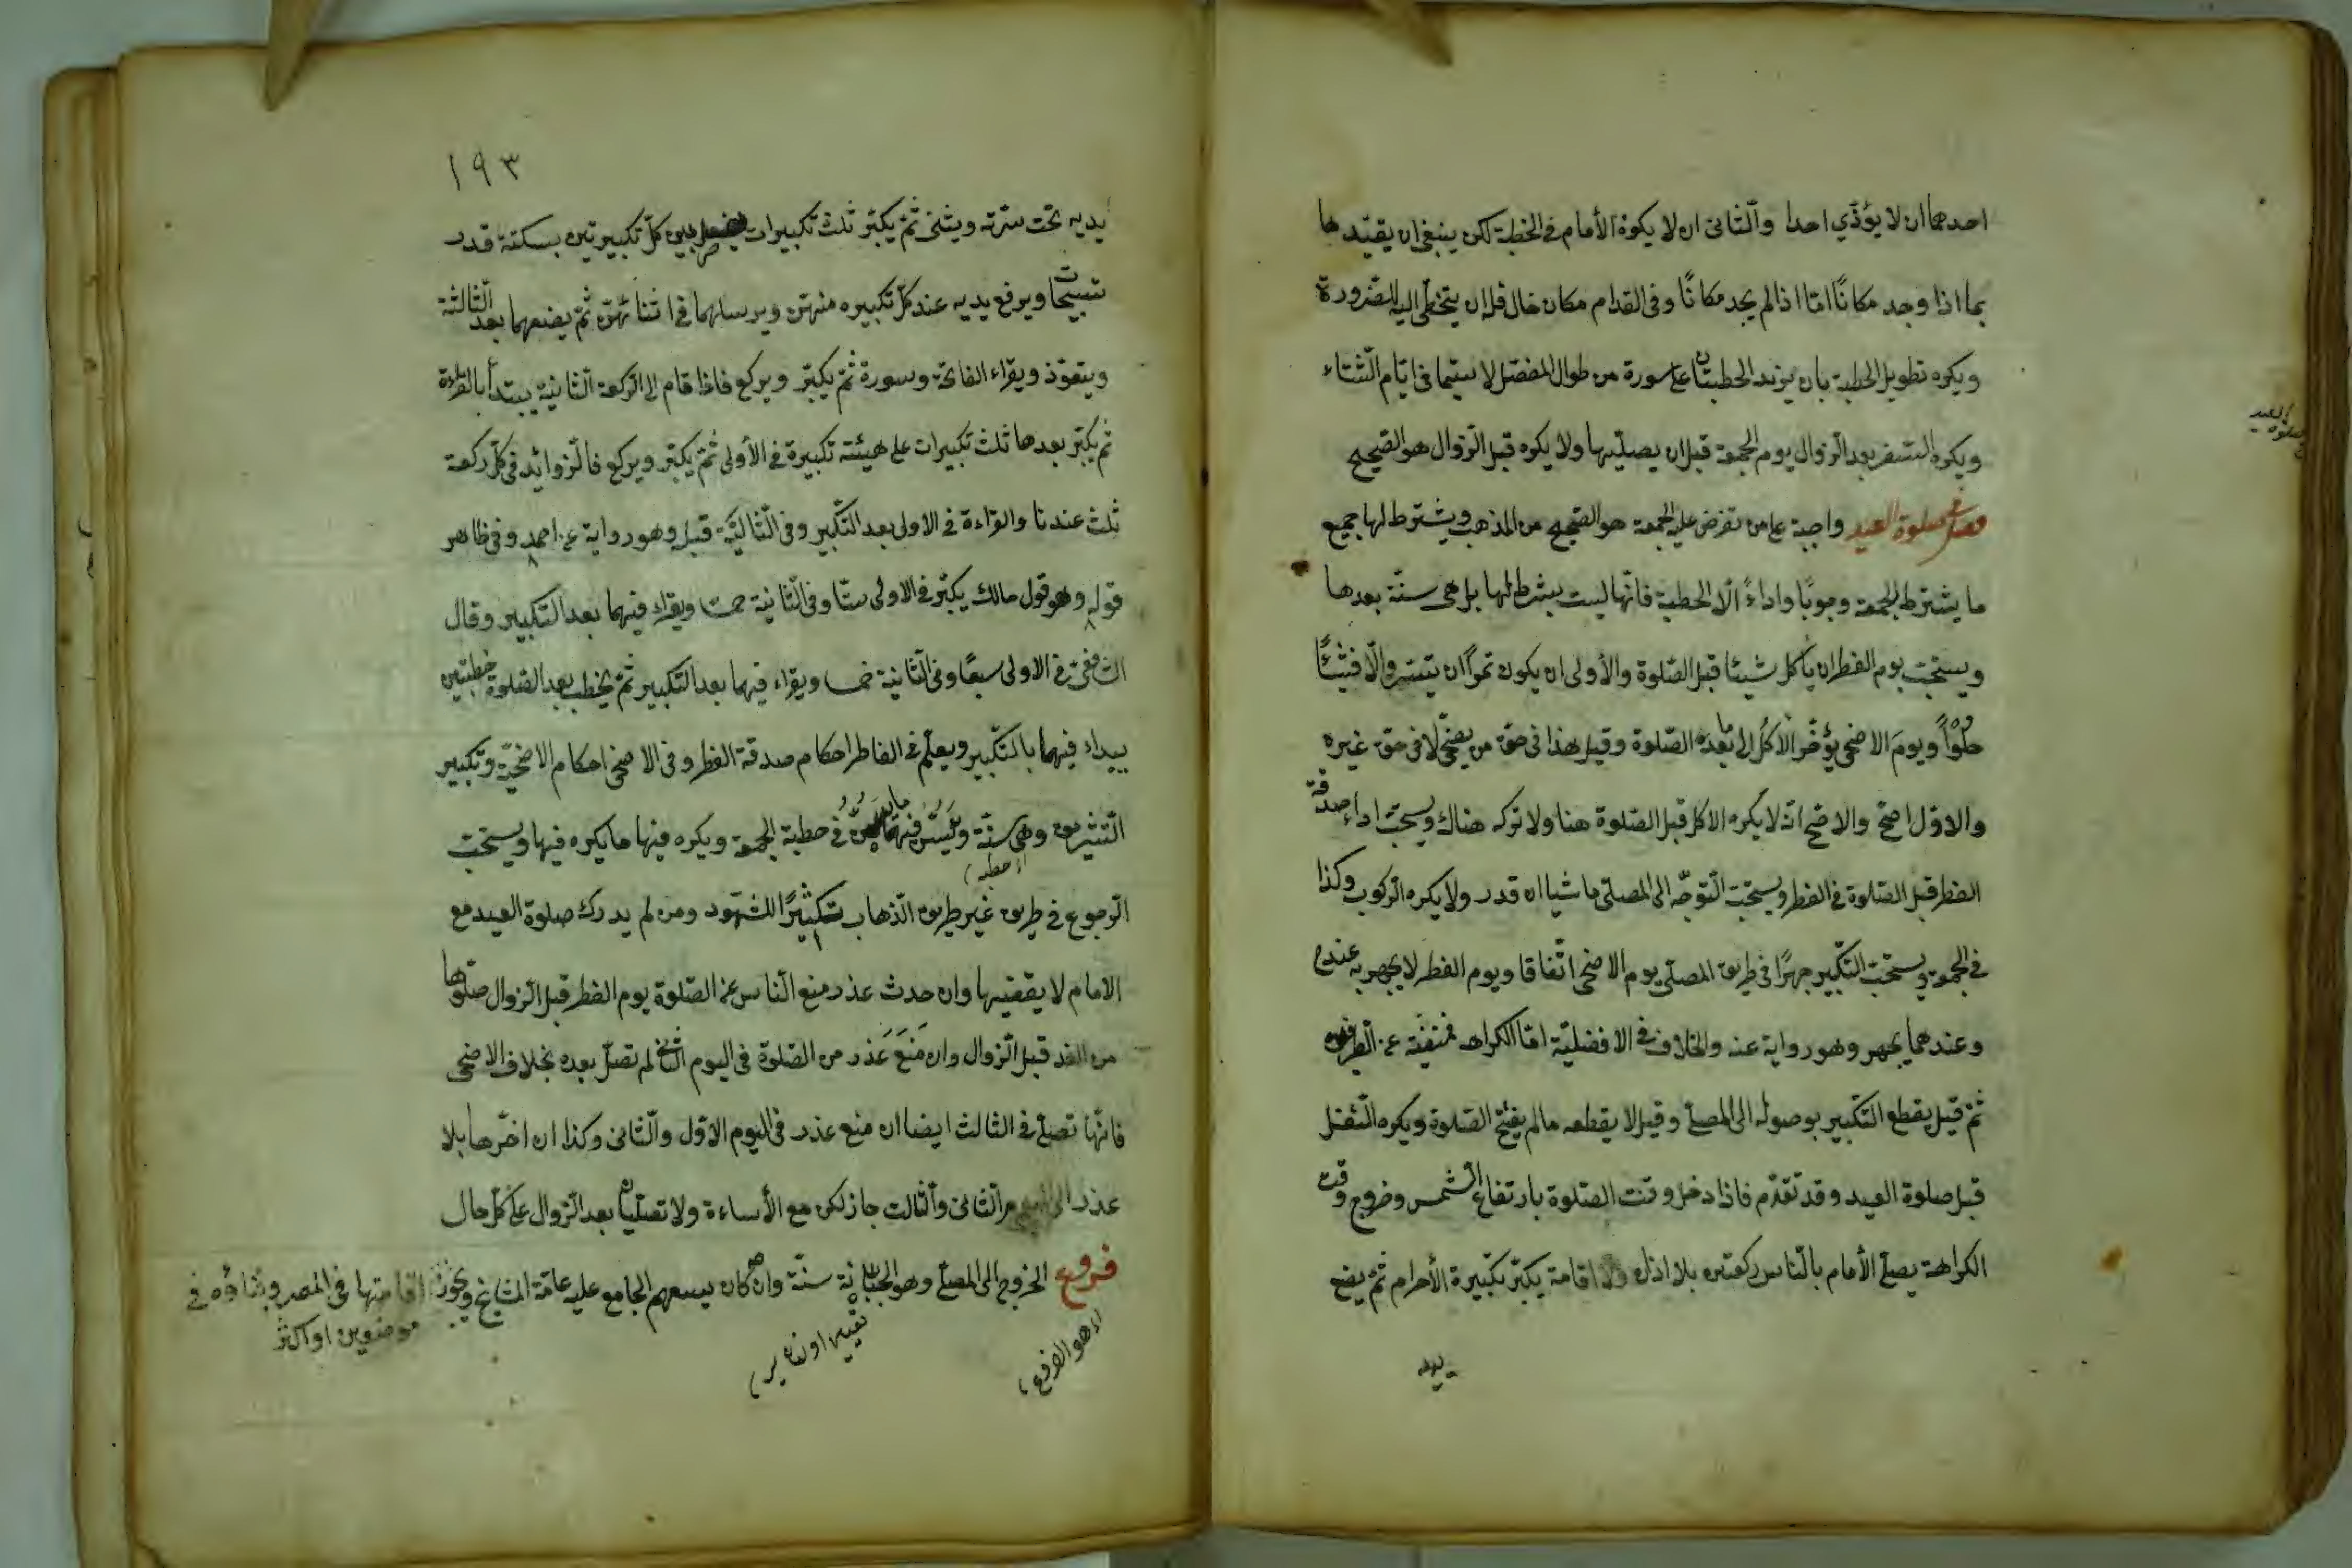 احدهما ان لا يؤذي احدا والثانى ان لا يكون الأمام فى الخطبة لكن ينبغى ان يقيد هـا
بما اذا وجد مكانًا امّا اذا لم يجد مكانًا وفى القدام مكان خال فله ان يتخطى اليه للضرورة
ويكره تطويل الخطبة بان يزيد الخطبتان على سورة من طوال المفصّل لا سيّما فى ايّام الشّتاء
ويكره السّفر بعد الزوال يوم الجمعة قبل ان يصلّيها ولا يكره قبل الزّوال هو الصّحيح
فصل فى صلوة العيد واجبة على من تفرض عليه الجمعة هو الصّحيح من المذهب ويشترط لها جميع
ما يشترط للجمعة وجوبًا واداءً الّا الخطبة فانّها ليست بشرط لها بل هى سنّة بعدها
ويستحبّ يوم الفطر ان يأكل شيئا قبل الصّلوة والأولى ان يكون تمرًا ان تيسّر والّا فشيئًا
حلوًا ويوم الاضحى يؤخّر الأكل الى ما بعد الصّلوة وقيل هذا فى حقّ من يضحّى لا فى حقّ غيره
والاوّل اصحّ والاصحّ انّه لا يكره الاكل قبل الصّلوة هنا ولا تركه هناك ويستحبّ اداء صدقة
الفطر قبل الصّلوة فى الفطر ويستحبّ التّوجّه الى المصلّى ماشيا ان قدر ولا يكره الرّكوب وكذا
فى الجمعة ويستحبّ التّكبير جهرًا فى طريق المصلّى يوم الاضحى اتّفاقا ويوم الفطر لا يجهر به عنده
وعندهما يجهر وهو رواية عنه والخلاف فى الافضليّة امّا الكراهة فمنتفية عن الطرفين
ثمّ قيل يقطع التّكبير بوصوله الى المصلّى وقيل لا يقطعه ما لم يفتح الصّلوة ويكره التّنفّل
قبل صلوة العيد وقد تقدّم فاذا دخل وقت الصّلوة بارتفاع الشّمس وخروج وقت
الكراهة يصلّى الأمام بالنّاس ركعتين بلا اذان ولا اقامة يكبّر تكبيرة الأحرام ثمّ يضع
يديه
صلوة العيد
١٩٣
يديه تحت سرّته ويثنى ثمّ يكبّر ثلث تكبيرات يفصل بين كلّ تكبيرتين بسكتة قدر
تسبيحات ويرفع يديه عند كلّ تكبيره منهنّ ويرسلهما فى اثنائهنّ ثمّ يضعهما بعد الثّالثة
ويتعوّذ ويقراء الفاتحة وسورة ثمّ يكبّر ويركع فاذا قام الى الرّكعة الثّانية يبتدأ بالقراءة
ثم يكبّر بعدها ثلث تكبيرات على هيئة تكبيرة فى الأولى ثمّ يكبّر ويركع فالزّوائد فى كلّ ركعة
ثلث عندنا والقراءة فى الاولى بعد التّكبير وفى الثّانيّة قبله وهو رواية عن احمد وفى ظاهر
قوله وهو قول مالك يكبّر فى الاولى ستّا وفى الثّانية خمسا ويقراء فيهما بعد التّكبير وقال
الشافعىّ فى الاولى سبعًا وفى الثّانية خمسا ويقراء فيهما بعد التّكبير ثمّ يخطب بعد الصّلوة خطبتين
يبداء فيهما بالتّكبير ويعلّم فى الفاطر احكام صدقة الفطر وفى الاضحى احكام الاضحيّة وتكبير
التّشريق وهى سنّة ويسنّ فيها ما يسنّ فى خطبة الجمعة ويكره فيها ما يكره فيها ويستحبّ
اى خطبه
الرّجوع فى طريق غير طريق الذّهاب تكثيرًا للشّهود ومن لم يدرك صلوة العيد مع
الامام لا يقضيها وان حدث عذر منع النّاس عن الصّلوة يوم الفطر قبل الزّوال صلّوها
من الغد قبل الزّوال وان مَنَعَ عَذر من الصّلوة فى اليوم الثانى لم تصلّ بعده بخلاف الاضحى
فانّها تصلّى فى الثالث ايضا ان منع عذر فى اليوم الاوّل والثّانى وكذا ان اخّرها بلا
عذر الى اليوم الثّانى والثّالث جاز لكن مع الأساءة ولا تصلّيان بعد الزّوال على كلّ حال
فروع الخروج الى المصلّى وهو الجبّانة سنّة وان كان يسعهم الجامع عليه عامّة المشايخ ويجوز اقامتها فى المصر وفنائه فى
موضعين او اكثر